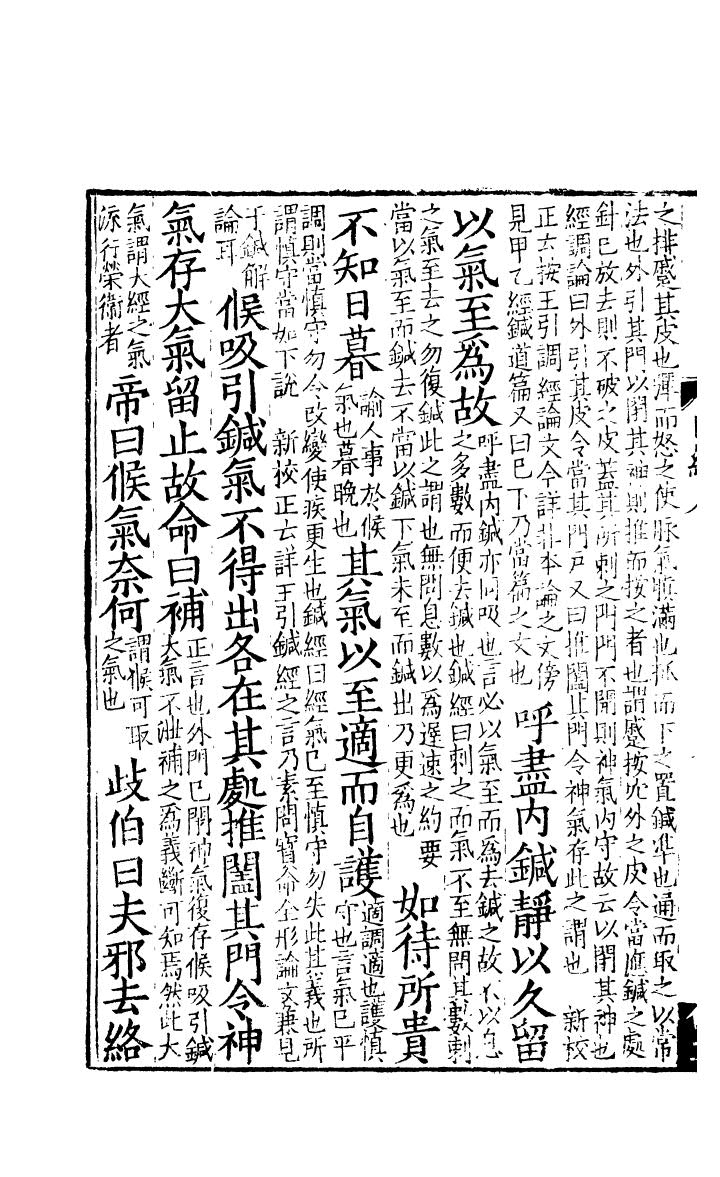 之排蹙其皮也彈而怒之使脉氣䐜滿也抓而下之置鍼準也通而取之以常
法也外引其門以閉其神則推而按之者也謂蹙按穴外之皮令當應鍼之處
針已放去則不破之皮蓋其所刺之門門不開則神氣内守故云以閉其神也
經調論曰外引其皮令當其門戸又曰推闔其門令神氣存此之謂也　新校
正云按王引調經論文今詳非本論之文傍
見甲乙經鍼道篇又曰已下乃當篇之文也
呼盡内鍼靜以久留
以氣至爲故
呼盡内鍼亦同吸也言必以氣至而爲去鍼之故不以息
之多數而便去鍼也鍼經曰刺之而氣不至無問其數刺
之氣至去之勿復鍼此之謂也無問息數以爲遲速之約要
當以氣至而鍼去不當以鍼下氣未至而鍼出乃更爲也
如待所貴
不知日暮
諭人事於候
氣也暮晚也
其氣以至適而自護
適調適也護慎
守也言氣已平
調則當慎守勿令改變使疾更生也鍼經曰經氣已至慎守勿失此其義也所
謂慎守當如下說　新校正云詳王引鍼經之言乃素問寶命全形論文兼見
于鍼解
論耳
候吸引鍼氣不得出各在其處推闔其門令神
氣存大氣留止故命曰補
正言也外門已閉神氣復存候吸引鍼
大氣不泄補之爲義斷可知焉然此大
氣謂大經之氣
流行榮衛者
帝曰候氣奈何
謂候可取
之氣也
歧伯曰夫邪去絡